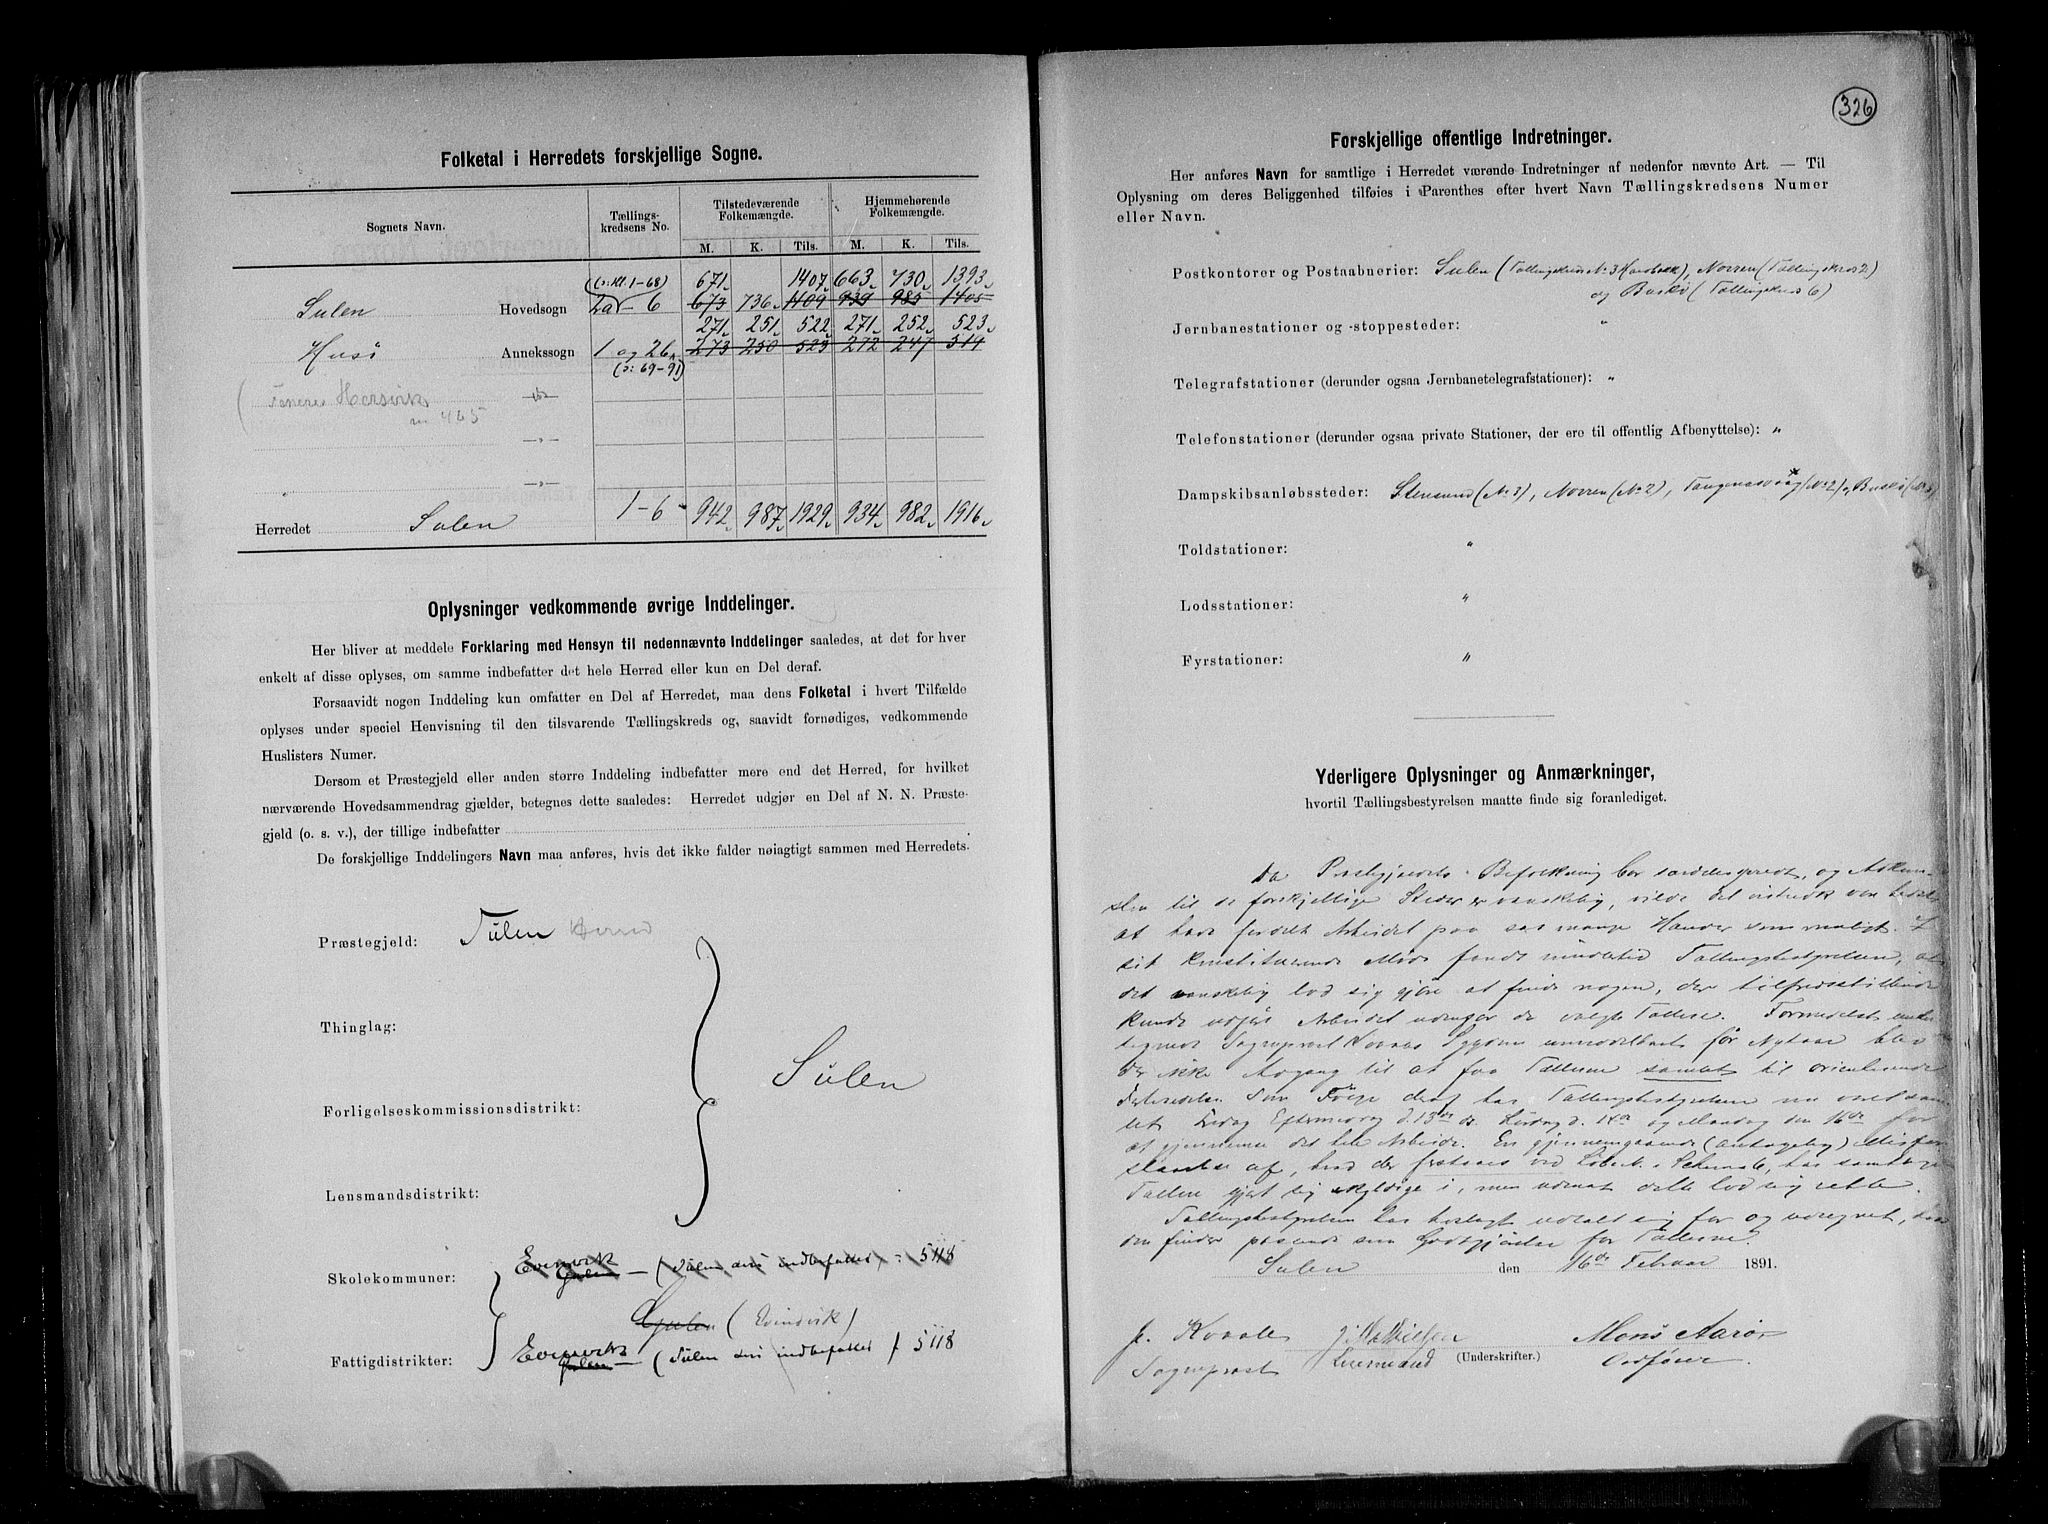 Folketal i Herredets forskjellige Sogne.
Sognets Navn.
Tællings-
kredsens No.
Tilstedeværende
Folkemængde.
Hjemmehørende
Folkemængde.
M. K. Tils. M. K. Tils.
(o: Hl. 1-68) 671 1407 663 730 1393
Sulen Hovedsogn 2a - 6 673 736 1409 939 985 1405
271 251 522 271 252 523
Husø Annekssogn 1 og 2b 273 250 523 272 247 519
(o: 69-91)
Hersvik
465
Herredet Sulen 1-6 942 987 1929 934 982 1916
Oplysninger vedkommende øvrige Inddelinger.
Her bliver at meddele Forklaring med Hensyn til nedennævnte Inddelinger saaledes, at det for hver
enkelt af disse oplyses, om samme indbefatter det hele Herred eller kun en Del deraf.
Forsaavidt nogen Inddeling kun omfatter en Del af Herredet, maa dens Folketal i hvert Tilfælde
oplyses under speciel Henvisning til den tilsvarende Tællingskreds og, saavidt fornødiges, vedkommende
Huslisters Numer.
Dersom et Præstegjeld eller anden større Inddeling indbefatter mere end det Herred, for hvilket
nærværende Hovedsammendrag gjælder, betegnes dette saaledes: Herredet udgjør en Del af N. N. Præste-
gjeld (o. s. v.), der tillige indbefatter
De forskjellige Inddelingers Navn maa anføres, hvis det ikke falder nøiagtigt sammen med Herredets.
Præstegjeld: Sulen Herred
Thinglag:
Sulen
Forligelseskommissionsdistrikt:
Lensmandsdistrikt:
Skolekommuner: Evenvik Gulen (Sulen deri indbefattet) = 5118
Gulen (Evindvik)
Fattigdistrikter: Evenvik Gulen (Sulen deri indbefattet) 5118
326
Forskjellige offentlige Indretninger.
Her anføres Navn for samtlige i Herredet værende Indretninger af nedenfor nævnte Art. — Til
Oplysning om deres Beliggenhed tilføies i Parenthes efter hvert Navn Tællingskredsens Numer
eller Navn.
Postkontorer og Postaabnerier: Sulen (Tællingskreds No 3 Hardbakk), Norren (Tællingskreds 2)
og Buskø (Tællingskreds 6)
Jernbanestationer og -stoppesteder: "
Telegrafstationer (derunder ogsaa Jernbanetelegrafstationer): "
Telefonstationer (derunder ogsaa private Stationer, der ere til offentlig Afbenyttelse): "
Dampskibsanløbssteder: Stensund (No 3), Norren (No 2), Tangenesvaag (No 2), Buskø
Toldstationer: "
Lodsstationer: "
Fyrstationer: "
Yderligere Oplysninger og Anmærkninger,
hvortil Tællingsbestyrelsen maatte finde sig foranlediget.
Da Præstegjeldets Befolkning bor særdeles spredt, og Adkom-
sten til de forskjellige Steder er vanskelig, vilde det
at have fordelt Arbeidet paa saa mange Hænder som muligt. I
sit konstituerende Møde fandt imidlertid Tællingsbestyrelsen, at
det vanskelig lod sig gjøre at finde nogen, der tilfredsstillende
kunde udføre Arbeidet udenfor de valgte Tællere. Formedelst under-
tegnede Sogneprest Kvaales Sygdom umiddelbart før Nytaar blev
der ikke Adgang til at faa Tællerne samlet til orienterende
Som Følge deraf har Tællingsbestyrelsen nu været sam-
let Fredag Eftermiddag d. 13de ds. Lørdag d. 14de og Mandag den 16de for
at gjennemse det hele Arbeide. En gjennemgaaende (antagelig) Misfor-
staaelse af, hvad der forstaaes ved i Schema 6, har samtlige
Tællere gjort sig skyldige i, men dette lod sig rette.
Tællingsbestyrelsen har
om finder passende som Godtgjørelse for Tællerne.
Sulen den 16de Februar 1891.
J. Kvaale J. Mathiesen Mons Aarø
Sogneprest Lensmand (Underskrifter.) Ordfører.